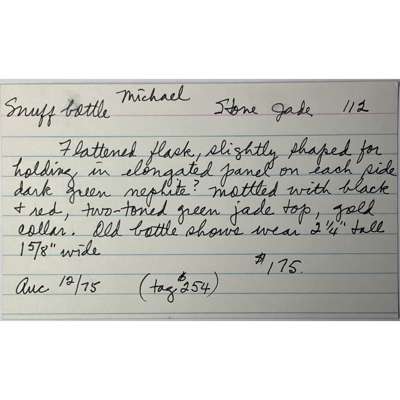 Snuff bottle Michael Stone Jade 112
Flattened flask, slightly shaped for
holding in elongated panel on each side
dark green nephite? mottled with black
+ red, two-toned green jade top, gold
collar. Old bottle shows wear 2 1/4" tall
1 5/8" wide
$175.
Auc 12/75 (tag $254)